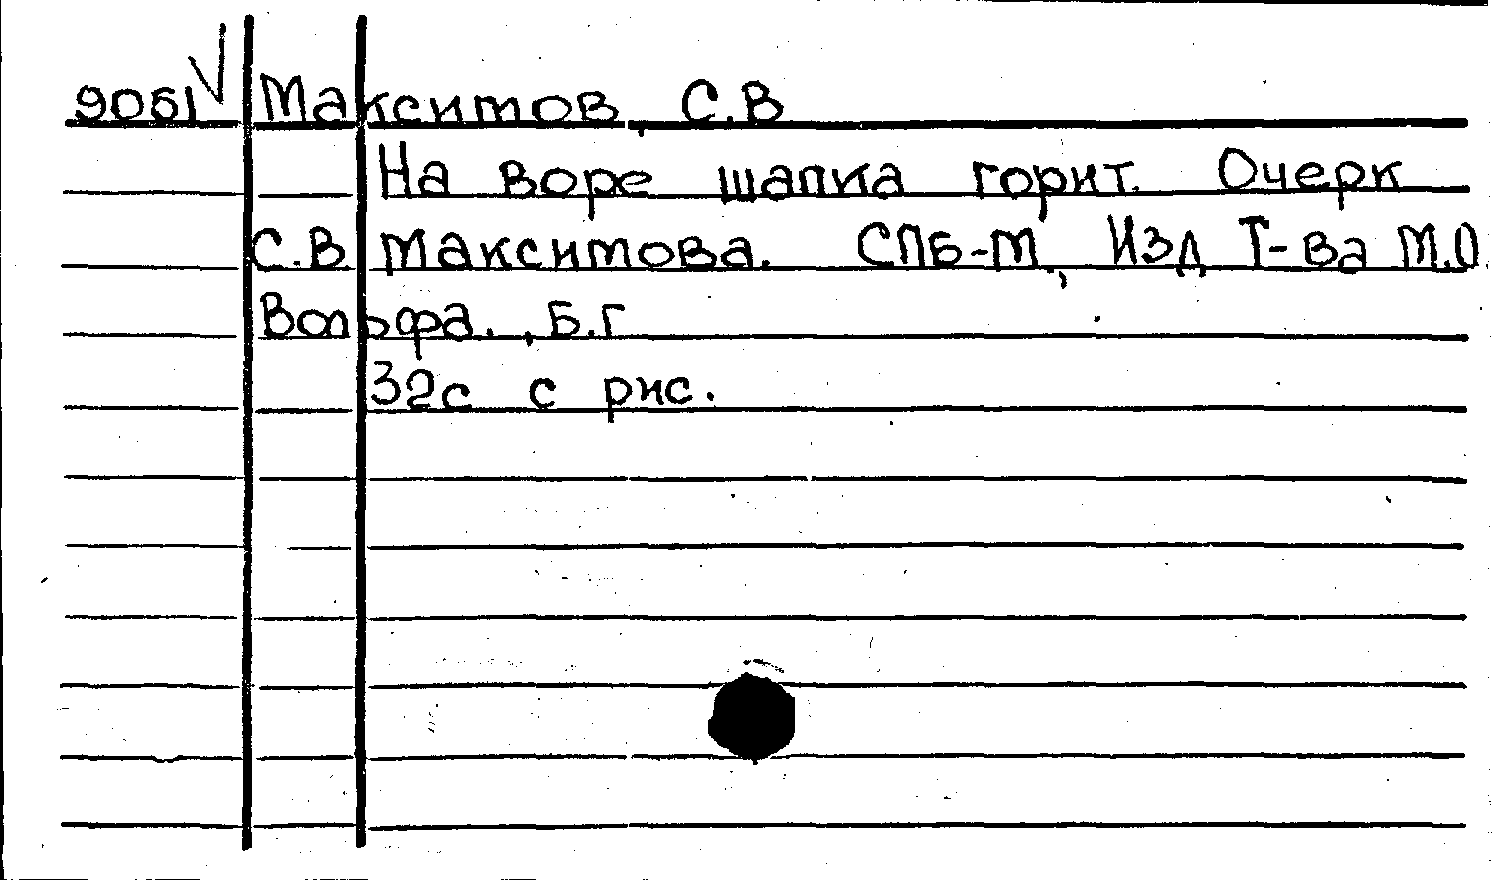 9051 √ Максимов, С.В
На воре шапка горит. Очерк
С.В Максимова. СПБ-М, Изд Т-ва М.О.
Вольфа., Б.г
32с с рис.